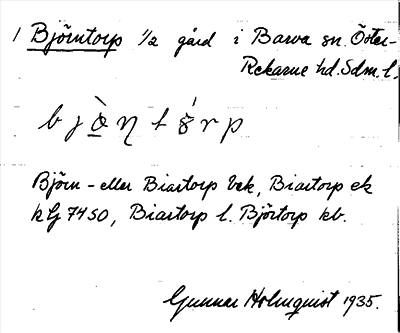 1 Björntorp 1/2 gård i Barva sn. Öster-
Rekarne hd. Sdm. l.
Björn - eller Biastorp bek, Biastorp ek
k G 7450, Biastorp l. Björtorp kb.
Gunnar Holmquist 1935.